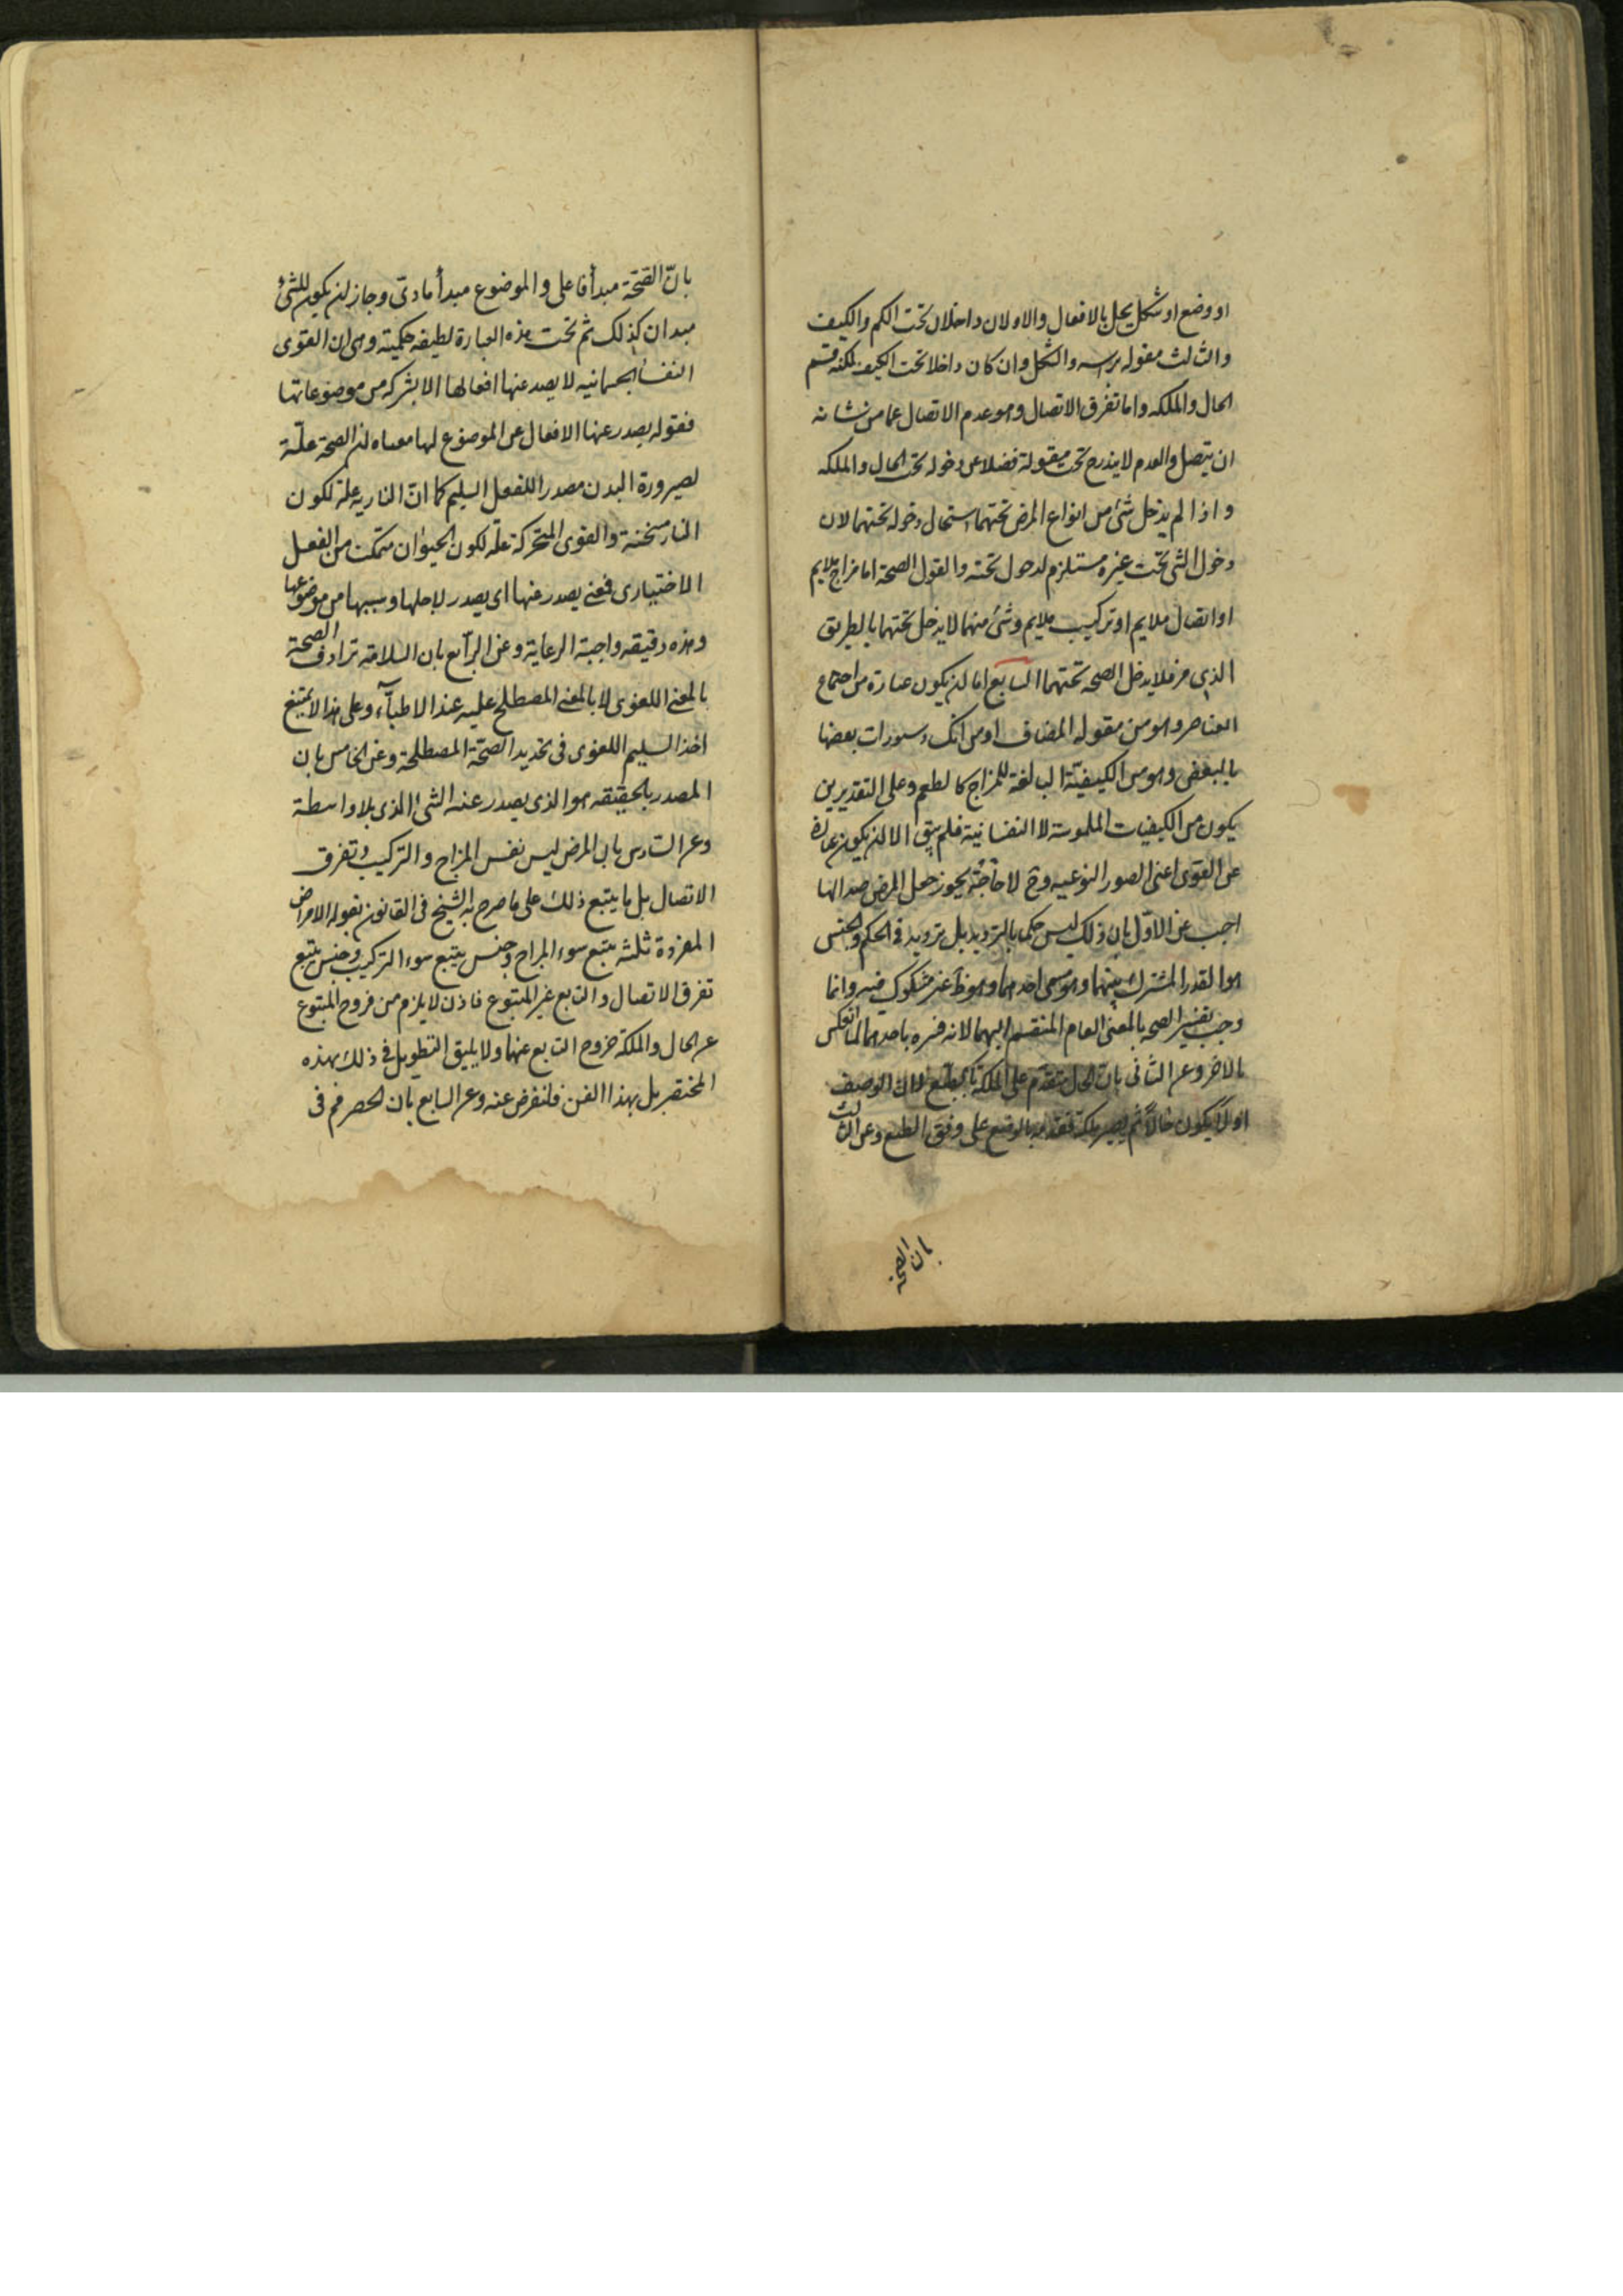 او وضع او شكل يخل بالافعال والاولان داخلان تحت الكم والكيف
والثالث مقوله براسه والشكل وان كان داخلا تحت الكيف لكنه قسم
الحال والملكه واما تفرق الاتصال وهو عدم الاتصال عما من شانه
ان يتصل والعدم لا يندرج تحت مقولة فضلا عن دخوله تحت الحال والملكه
واذا لم يدخل شئ من انواع المرض تحتهما استحال دخوله تحتهما لان
دخول الشى تحت غيره مستلزم لدخول تحته والقول الصحة اما مزاج ملايم
او اتصال ملايم او تركيب ملايم وشئ منهما لا يدخل تحتهما بالطريق
الذى مر فلا يدخل الصحه تحتهما السابع اما لن يكون عبارة من اجتماع
العناصر وهو من مقوله المضاف او من انكسار سورات بعضها
بالبعض وهو من الكيفيّة البالغة للمزاج كالطعم وعلى التقديرين
يكون من الكيفيات الملموسة لا النفسانية فلم يبق الا لن يكون عبارة
عن القوى اعنى الصور النوعيه وح لا حاجة يجوز جعل المرض ضدا لها
اجيب عن الاوّل بان ذلك ليس حكما بالترديد بل ترديد فى الحكم والجنس
هو القدر المشترك بينهما وهو سمى احدهما وهو ظ غير مشكوك فيه وانما
وجب تفسير الصحه بالمعنى العام المنقسم اليهما لانه فسره باحدهما لما انعكس
بالاخر وعن الثانى بان الحال متقدم على الملكة بالطبع لان الوصف
اولا يكون حالا ثم يصير ملكة فقدمه بالوضع على وفق الطبع وعن الثالث
بان الصحة
بانّ الصّحّة مبدأ فاعلى والموضوع مبدأ مادىّ وجاز لن يكون للشئ
مبدان كذلك ثم تحت هذه العبارة لطيفه حكمية وهى ان القوى
النفسا الجسمانيه لا يصدر عنها افعالها الا بشركه من موضوعاتها
فقوله يصدر عنها الافعال عن الموضوع لها معناه لن الصحة علّة
لصيرورة البدن مصدرا للفعل السليم كما انّ الناريه علة لكون
النار مسخنة والقوى المتحركة علّة لكون الحيوان متمكنا من الفعل
الاختيارى فمعنى يصدر عنها اى يصدر لاجلها وبسببها من موضوعها
وهذه دقيقه واجبة الرعاية وعن الرابع بان السلامة ترادف الصحة
بالمعنى اللغوى لا بالمعنى المصطلح عليه عند الاطبآء وعلى هذا لا يمتنع
اخذ السليم اللغوى فى تحديد الصّحّة المصطلحة وعن الخامس بان
المصدر بالحقيقه هو الذى يصدر عنه الشى الذى بلا واسطة
وعن السّادس بان المرض ليس نفس المزاج والتركيب وتفرق
الاتصال بل ما يتبع ذلك على ما صرح به الشيخ فى القانون بقوله الامراض
المفردة ثلثه يتبع سوء المزاج وجنس يتبع سوء التركيب وجنس يتبع
تفرق الاتصال والتابع غير المتبوع فاذن لا يلزم من خروج المتبوع
عن الحال والملكة خروج التابع عنها ولا يليق التطويل فى ذلك بهذه
المختصر بل بهذا الفن فلنعرض عنه وعن السابع بان الحصر مم فى